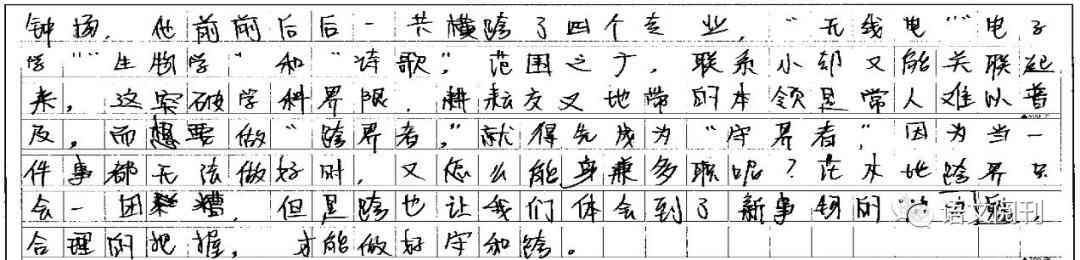 钟扬，他前前后后一共横跨了四个专业，“无线电”“电子
学”“生物学”和“诗歌”，范围之广，联系小却又能关联起
来，这突破学科界限，耕耘交叉地带的本领是常人难以普
及。而想要做“跨界者”，就得先成为“守界者”，因为当一
件事都无法做好时，又怎么能身兼多职呢？范水地跨界只
会一团糟，但是跨也让我们体会到了新事物的
合理的把握，才能做好守和跨。
语文周刊